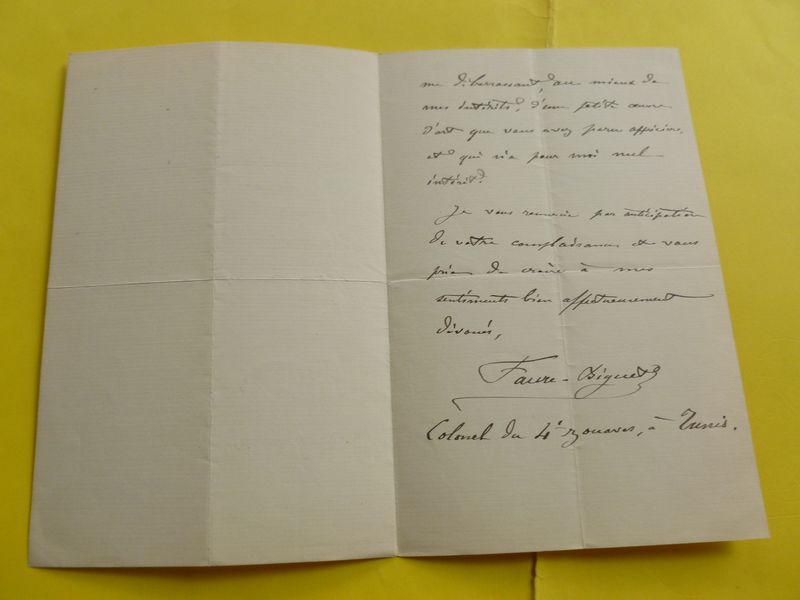 me débarrassant, au mieux de
mes intérêts, d'une petite œuvre
d'art que vous avez paru apprécier,
et qui n'a pour moi nul
intérêt.
Je vous remercie par anticipation
de votre complaisance et vous
prie de croire à mes
sentiments bien affectueusement
dévoués,
Faure-Biguet
Colonel du 4e zouaves, à Tunis.